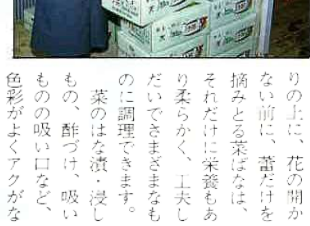 りの上に、花の開か
ない前に、蕾だけを
摘みとる菜ばなは、
それだけに栄養もあ
り柔らかく、工夫し
だいでさまざまなも
のに調理できます。
菜のはな漬・浸し
もの、酢づけ、吸い
ものの吸い口など、
色彩がよくアクがな